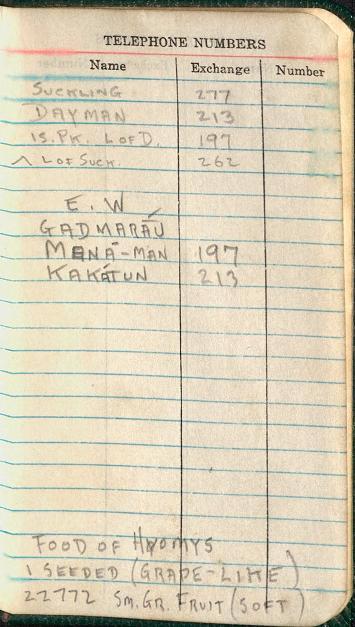 TELEPHONE NUMBERS
Name Exchange Number
SUCKLING 277
DAYMAN 213
IS. PK. L OF D. 197
^ L OF SUCK. 262
E. W
GADMARĀU
MENĀ-MAN 197
KAKÁTUN 213
FOOD OF HYOMYS
1 SEEDED (GRAPE-LIKE)
22772 SM. GR. FRUIT (SOFT)